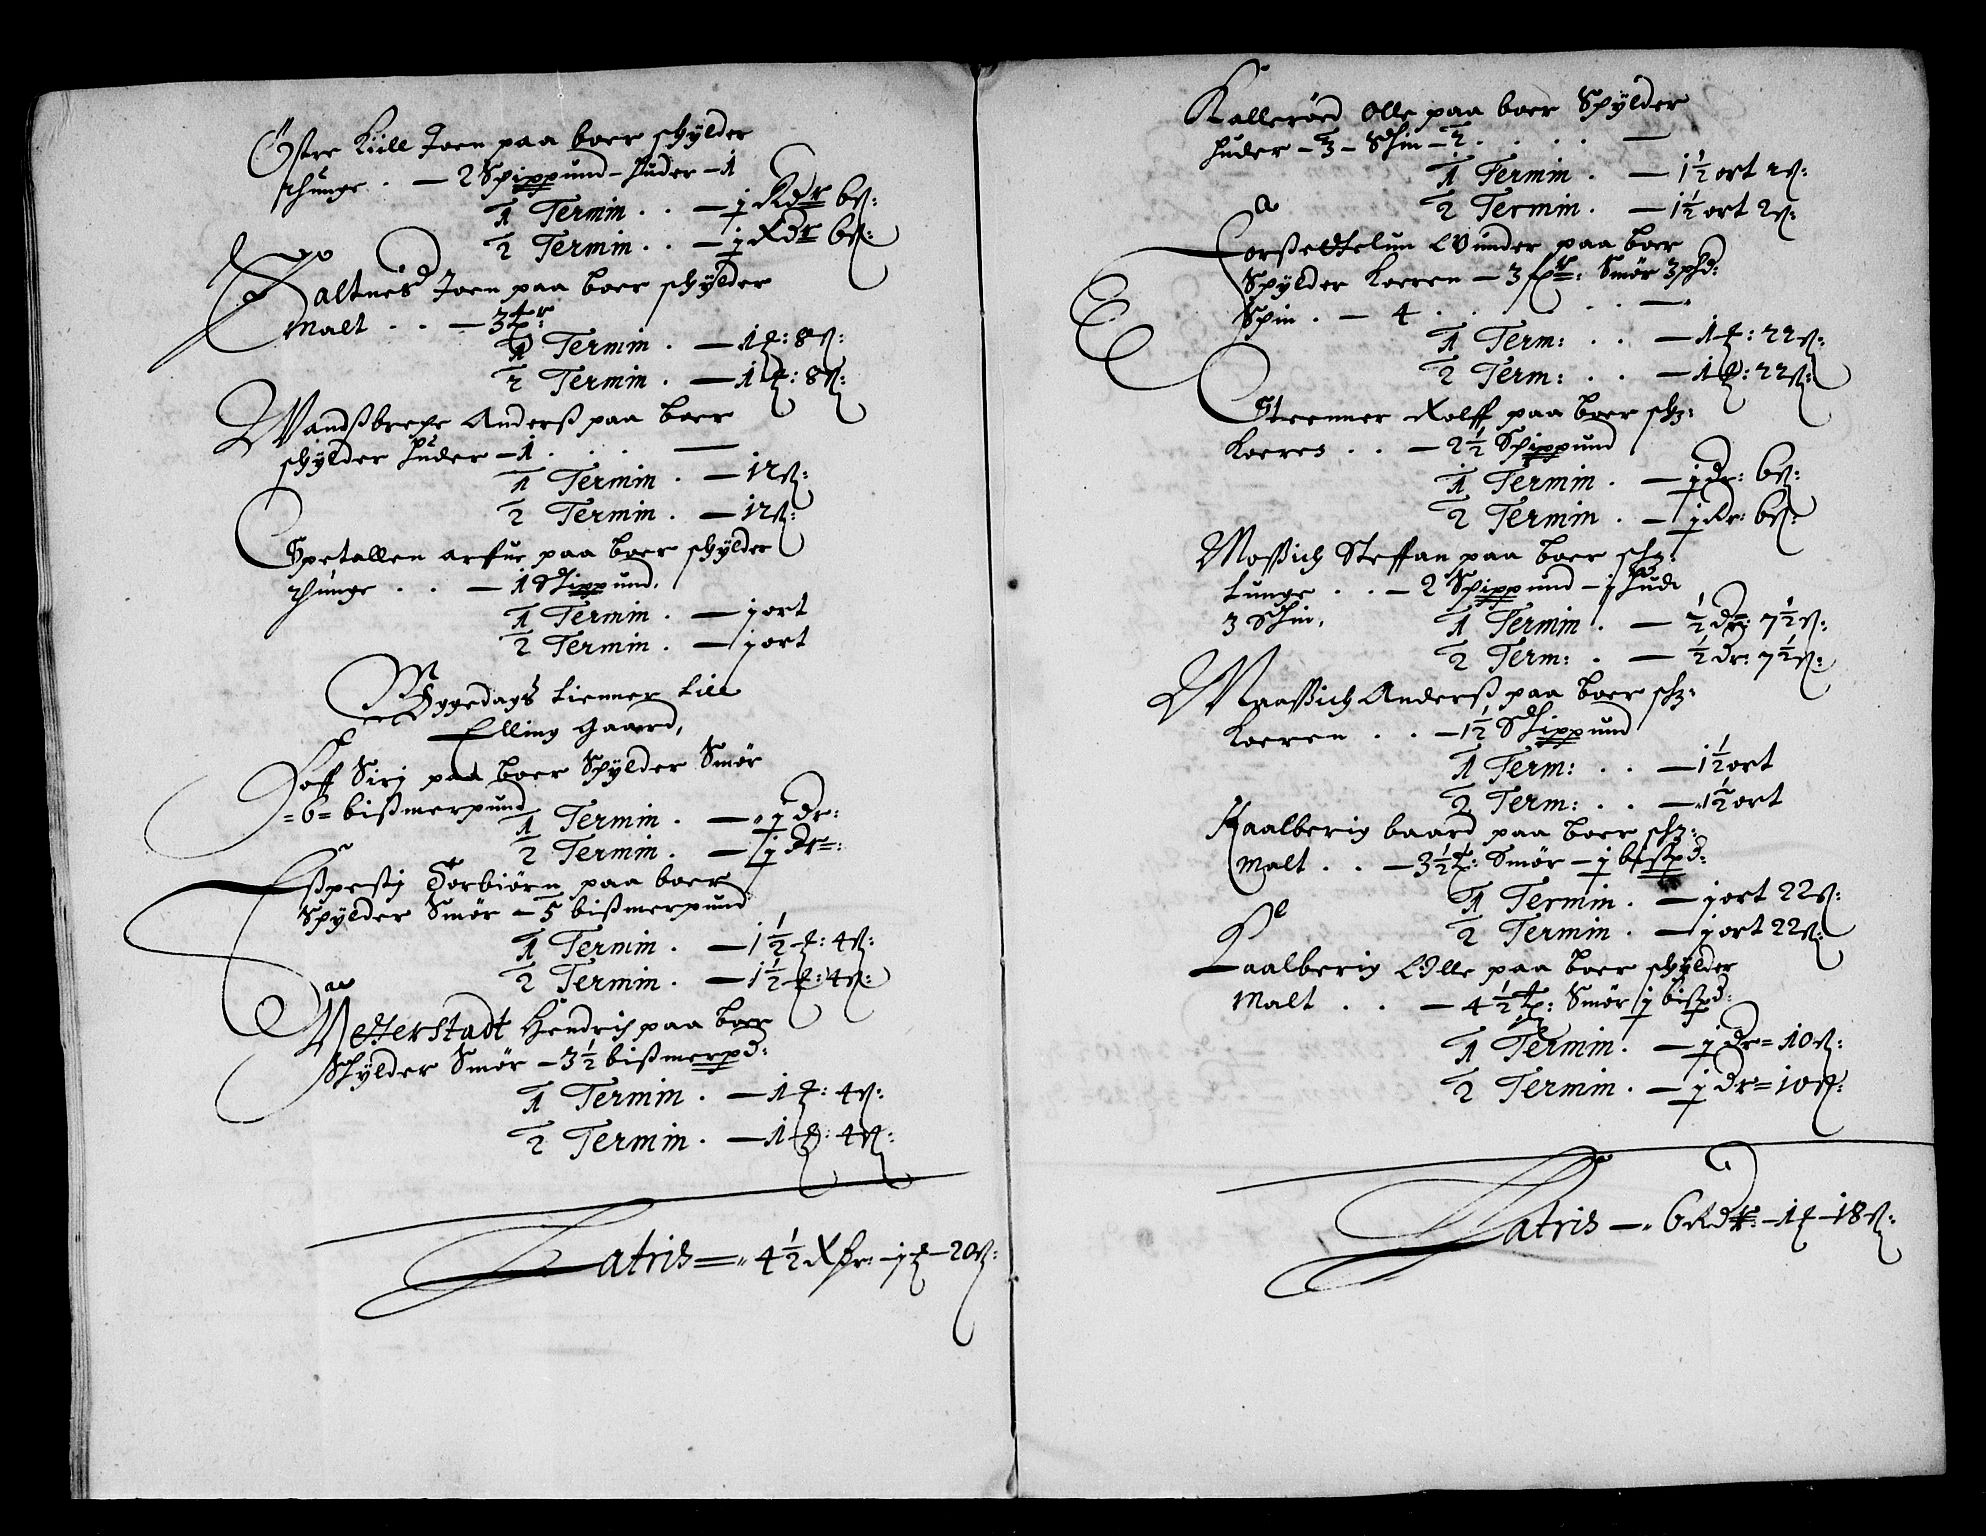 Østre Kiill Joen paa boer schylder
thunge . — 2 Schippund – huder – 1
1 Termin . . — j Rdr 6 ß:
2 Termin . . — j Rdr 6 ß:
Saltnes Joen paa boer schylder
Malt . . — 3 tr:
1 Termin . — 1 ₰: 8 ß:
2 Termin . — 1 ₰: 8 ß:
Wandßbreche Anderß paa boer
schylder huder – 1 . . . —
1 Termin . — 12 ß:
2 Termin . — 12 ß:
Spetallen arfue paa boer schylder
thunge . . — 1 Schippund,
1 Termin . — j ort
2 Termin . — j ort
Wggedags tienner till
Elling Gaard,
Hoff Sirj paa boer Schylder Smør
= 6 = bißmerpund
1 Termin . — j dr:
2 Termin . — j dr:
Eßpestij Torbiørn paa boer
Schylder Smør – 5 bißmerpund
1 Termin . — 1½ ₰: 4 ß:
2 Termin . — 1½ ₰: 4 ß:
Wetterstadt Hendrich paa boer
Schylder Smør – 3½ bißmerpd:
1 Termin . — 1 ₰: 4 ß:
2 Termin . — 1 ₰: 4 ß:
Latris = 4½ Rdr: – j ₰ – 20 ß:
Kallerød Olle paa boer Schylder
huder – 3 – Schin – 2 . . . . —
1 Termin . — 1½ ort 2 ß:
2 Termin . — 1½ ort 2 ß:
Gunder paa boer
Schylder Koeren — 3 Smør 3 phd:
Schin . — 4 . . . . —
1 Term: . . — 1 ₰: 22 ß:
2 Term: . . — 1 ₰: 22 ß:
Steenner Rolff paa boer sch:
Koeren . . — 2½ Schippund
1 Termin . — j dr: 6 ß:
2 Termin . — j dr: 6 ß:
Moßich Steffan paa boer sch:
tunge . . — 2 Schippund – j hud
3 Schin,
1 Termin . — ½ dr: 7½ ß:
2 Term: . — ½ dr: 7½ ß:
Maaßich Anderß paa boer sch:
Koeren . . — 1½ Schippund
1 Term: . . — 1½ ort
2 Term: . . — 1½ ort
Kaalberig baard paa boer sch:
Malt . . — 3½ t: Smør – j bißpd:
1 Termin . — j ort 22 ß:
2 Termin . — j ort 22 ß:
Kaalberig Olle paa boer schylder
Malt . . — 4½ t: Smør j bißpd:
1 Termin . — j dr = 10 ß:
2 Termin . — j dr = 10 ß:
Latris — 6 Rdr: – 1 ₰ – 18 ß: